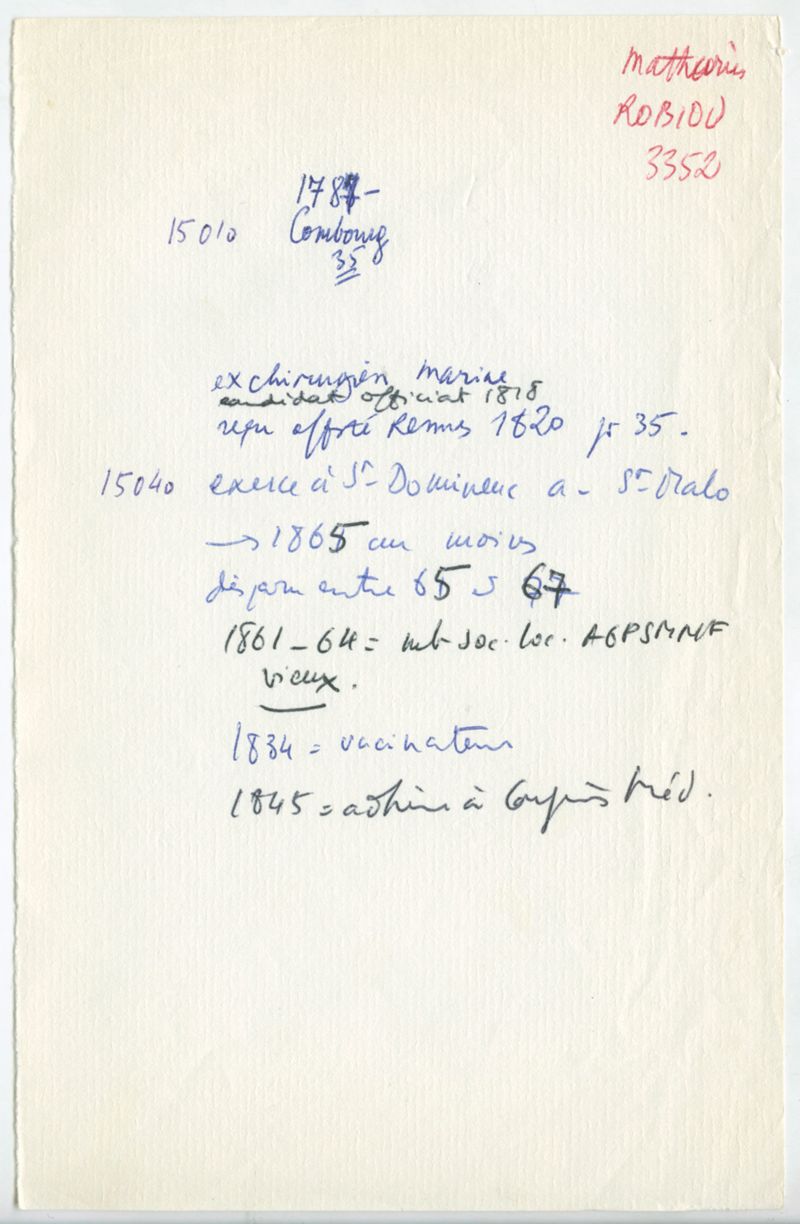 Mathurin
ROBIOU
3352
1787-
15010 Combourg
35
ex chirurgien marine
candidat officiat 1818
reçu offsté Rennes 1820 pr 35.
15040 exerce à St-Domineuc a - St-Malo
→ 1865 au moins
disparu entre 65 et 67
1861-64 = mb soc. loc. AGPSMMF
vieux.
1834 = vaccinateur
1845 = adhère à Congrès Méd.